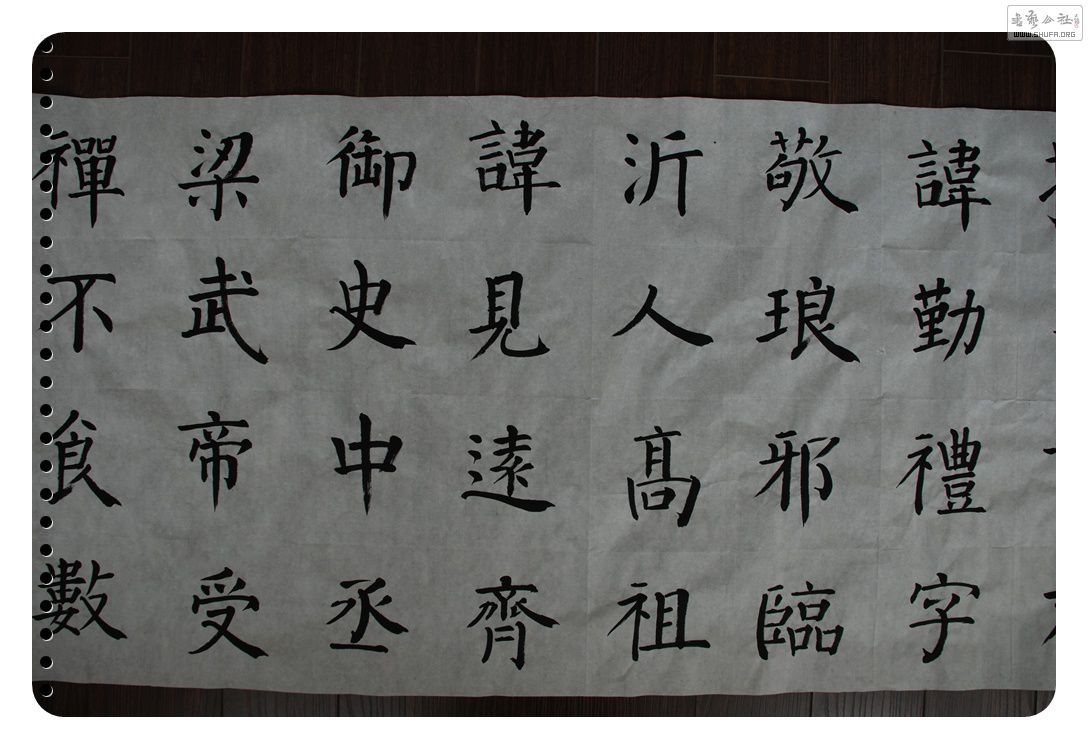 諱勤禮字
敬琅邪臨
沂人高祖
諱見遠齊
御史中丞
梁武帝受
禪不食數
WWW.SHUFA.ORG